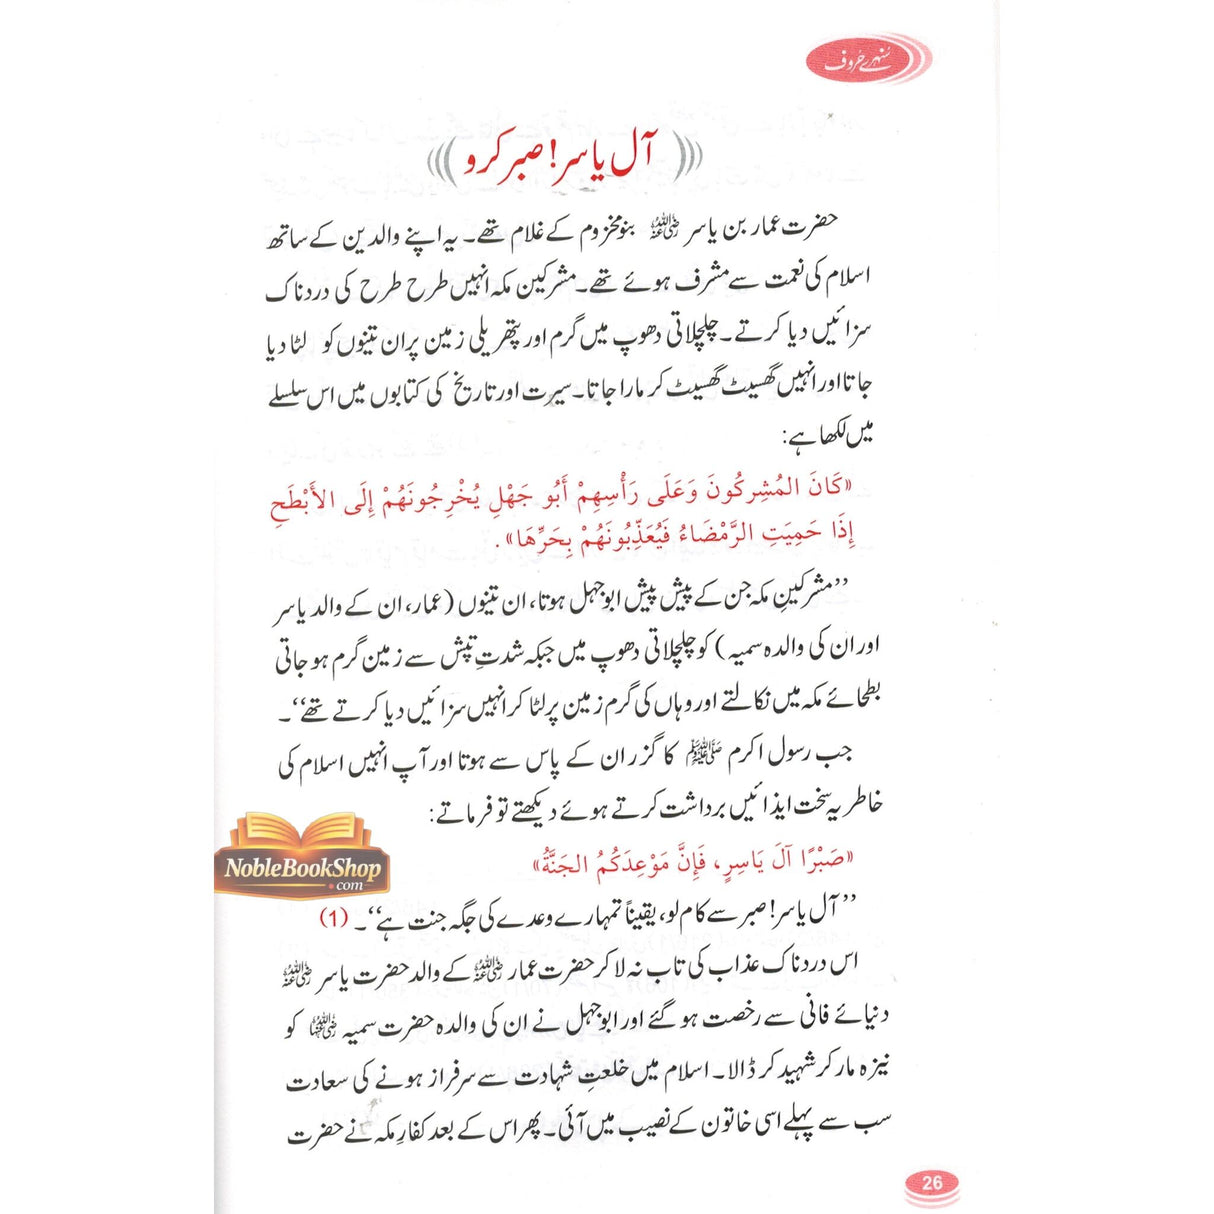 سنہرے حروف
آل یاسر! صبر کرو
حضرت عمار بن یاسر رضی اللہ عنہ بنو مخزوم کے غلام تھے۔ یہ اپنے والدین کے ساتھ
اسلام کی نعمت سے مشرف ہوئے تھے۔ مشرکین مکہ انہیں طرح طرح کی دردناک
سزائیں دیا کرتے۔ چلچلاتی دھوپ میں گرم اور پتھریلی زمین پر ان تینوں کو لٹا دیا
جاتا اور انہیں گھسیٹ گھسیٹ کر مارا جاتا۔ سیرت اور تاریخ کی کتابوں میں اس سلسلے
میں لکھا ہے:
«كَانَ المُشرِكُونَ وَعَلَى رَأْسِهِمْ أَبُو جَهْلٍ يُخْرِجُونَهُمْ إِلَى الأَبْطَحِ
إِذَا حَمِيَتِ الرَّمْضَاءُ فَيُعَذِّبُونَهُمْ بِحَرِّهَا».
’’مشرکینِ مکہ جن کے پیش پیش ابوجہل ہوتا، ان تینوں (عمار، ان کے والد یاسر
اور ان کی والدہ سمیہ) کو چلچلاتی دھوپ میں جبکہ شدتِ تپش سے زمین گرم ہو جاتی
بطحائے مکہ میں نکالتے اور وہاں کی گرم زمین پر لٹا کر انہیں سزائیں دیا کرتے تھے‘‘۔
جب رسول اکرم ﷺ کا گزر ان کے پاس سے ہوتا اور آپ انہیں اسلام کی
خاطر یہ سخت ایذائیں برداشت کرتے ہوئے دیکھتے تو فرماتے:
«صَبْرًا آلَ يَاسِرٍ، فَإِنَّ مَوْعِدَكُمُ الجَنَّةُ»
’’آل یاسر! صبر سے کام لو، یقیناً تمہارے وعدے کی جگہ جنت ہے‘‘۔ (1)
اس دردناک عذاب کی تاب نہ لا کر حضرت عمار رضی اللہ عنہ کے والد حضرت یاسر رضی اللہ عنہ
دنیائے فانی سے رخصت ہو گئے اور ابوجہل نے ان کی والدہ حضرت سمیہ رضی اللہ عنہا کو
نیزہ مار کر شہید کر ڈالا۔ اسلام میں خلعتِ شہادت سے سرفراز ہونے کی سعادت
سب سے پہلے اسی خاتون کے نصیب میں آئی۔ پھر اس کے بعد کفارِ مکہ نے حضرت
NobleBookShop
.com
26